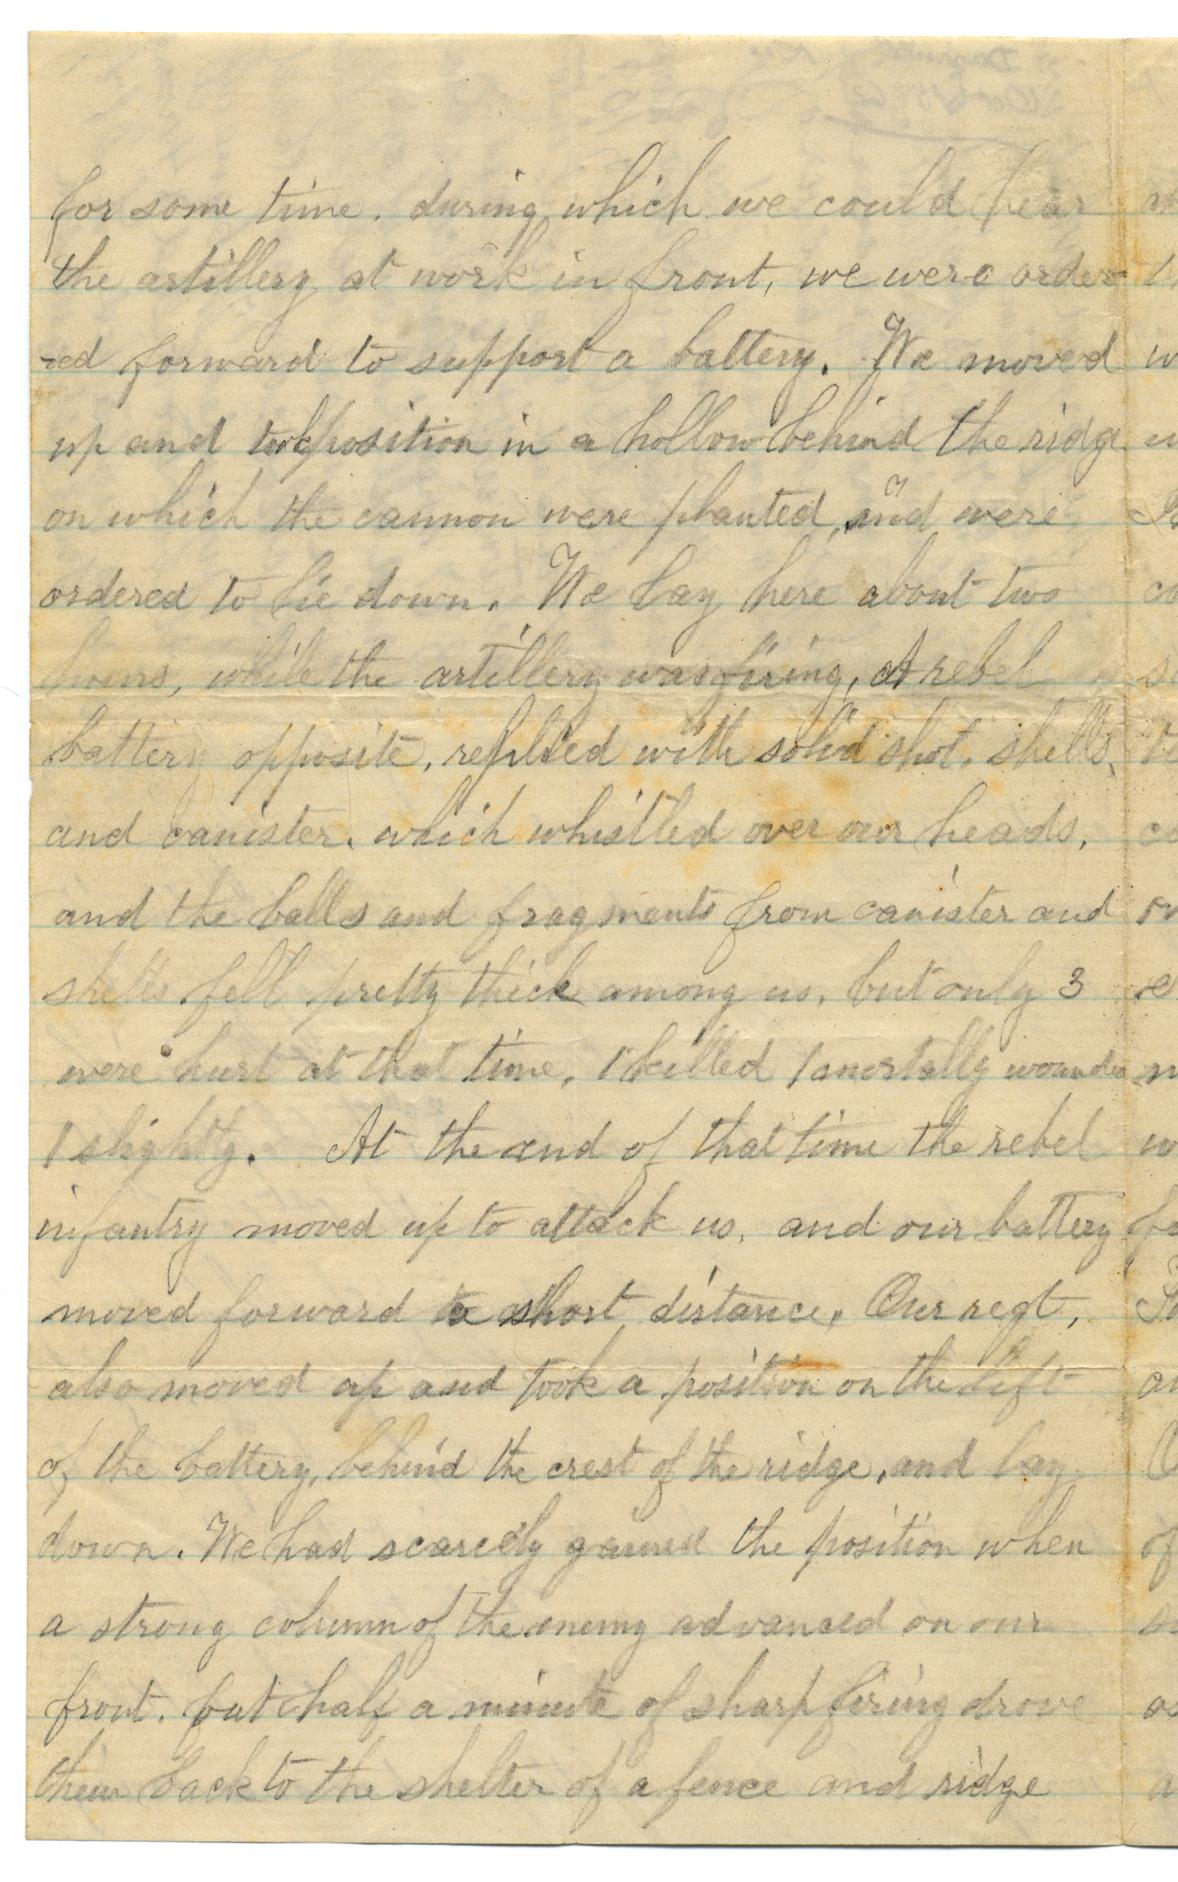 for some time. during which we could hear
the artillery at work in front, we were order
-ed forward to support a battery. We moved
up and took position in a hollow behind the ridge
on which the cannon were planted, and were
ordered to lie down. We lay here about two
hours, while the artillery was firing, A rebel
battery opposite, replied with solid shot, shells,
and canister, which whistled over our heads,
and the balls and fragments from canister and
shells fell pretty thick among us, but only 3
were hurt at that time, 1 killed 1 mortally wounded
1 slightly. At the end of that time the rebel
infantry moved up to attack us, and our battery
moved forward a short distance. Our regt,
also moved up and took a position on the left
of the battery, behind the crest of the ridge, and lay
down. We had scarcely gained the position when
a strong column of the enemy advanced on our
front. but half a minute of sharp firing drove
them back to the shelter of a fence and ridge